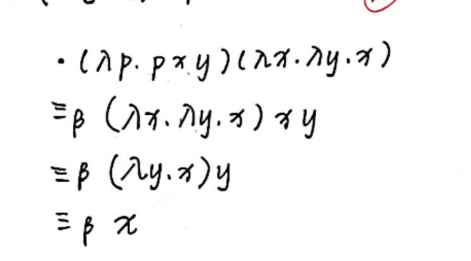 · (λp. p x y)(λx. λy. x)
≡β (λx. λy. x) x y
≡β (λy. x) y
≡β x